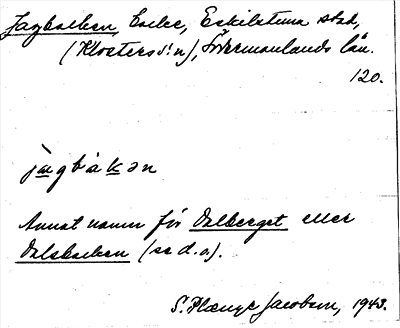 Jagbacken, Backe, Eskilstuna stad,
(Klosters s:n), Södermanlands län.
120.
jagbakən
Annat namn för Valberget eller
Valsbacken (se d.o.).
S. Plænge Jacobson, 1943.